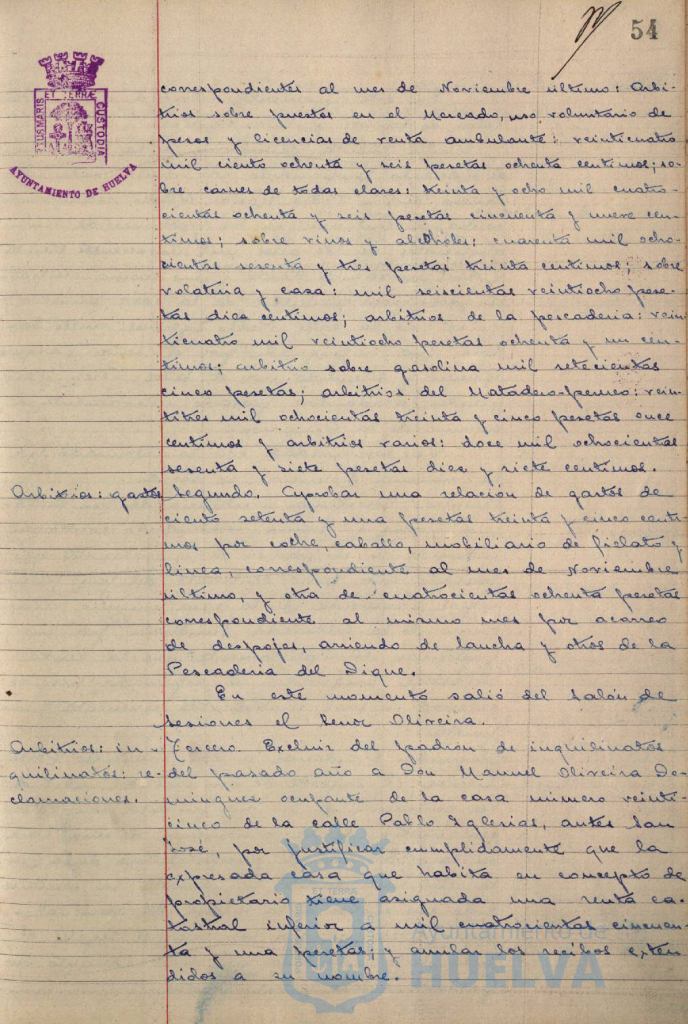 54
ET TERRÆ
PORTUS MARIS
CUSTODIA
AYUNTAMIENTO DE HUELVA
correspondientes al mes de Noviembre último: Arbi-
trios sobre puestos en el Mercado, uso voluntario de
pesos y licencias de venta ambulante: veinticuatro
mil ciento ochenta y seis pesetas ochenta centimos; so-
bre carnes de todas clases: treinta y ocho mil cuatro-
cientas ochenta y seis pesetas cincuenta y nueve cen-
timos; sobre vinos y alcoholes: cuarenta mil ocho-
cientas sesenta y tres pesetas treinta centimos; sobre
volateria y casa: mil seiscientas veintiocho pese-
tas diez centimos; arbitrios de la pescaderia: vein-
ticuatro mil veintiocho pesetas ochenta y un cen-
timos; arbitrio sobre gasolina mil setecientas
cinco pesetas; arbitrios del Matadero-perneo: vein-
titres mil ochocientas treinta y cinco pesetas once
centimos y arbitrios varios: doce mil ochocientas
sesenta y siete pesetas diez y siete centimos.
Arbitrios: gastos Segundo. Aprobar una relación de gastos de
ciento setenta y una pesetas treinta y cinco centi-
mos por coche, caballo, mobiliario de fielato y
linea, correspondiente al mes de Noviembre
último, y otra de cuatrocientas ochenta pesetas
correspondiente al mismo mes por acarreo
de despojos, arriendo de lancha y otros de la
Pescaderia del Dique.
En este momento salió del Salón de
Sesiones el Señor Oliveira.
Arbitrios: in- Tercero. Excluir del padron de inquilinatos
quilinatos: re- del pasado año a Don Manuel Oliveira Do-
clamaciones. minguez ocupante de la casa número veinti-
cinco de la calle Pablo Iglesias, antes San
José, por justificar cumplidamente que la
expresada casa que habita en concepto de
propietario tiene asignada una renta ca-
tastral inferior a mil cuatrocientas cincuen-
ta y una pesetas; y anular los recibos exten-
didos a su nombre.
ET TERRÆ
Ayuntamiento de
HUELVA